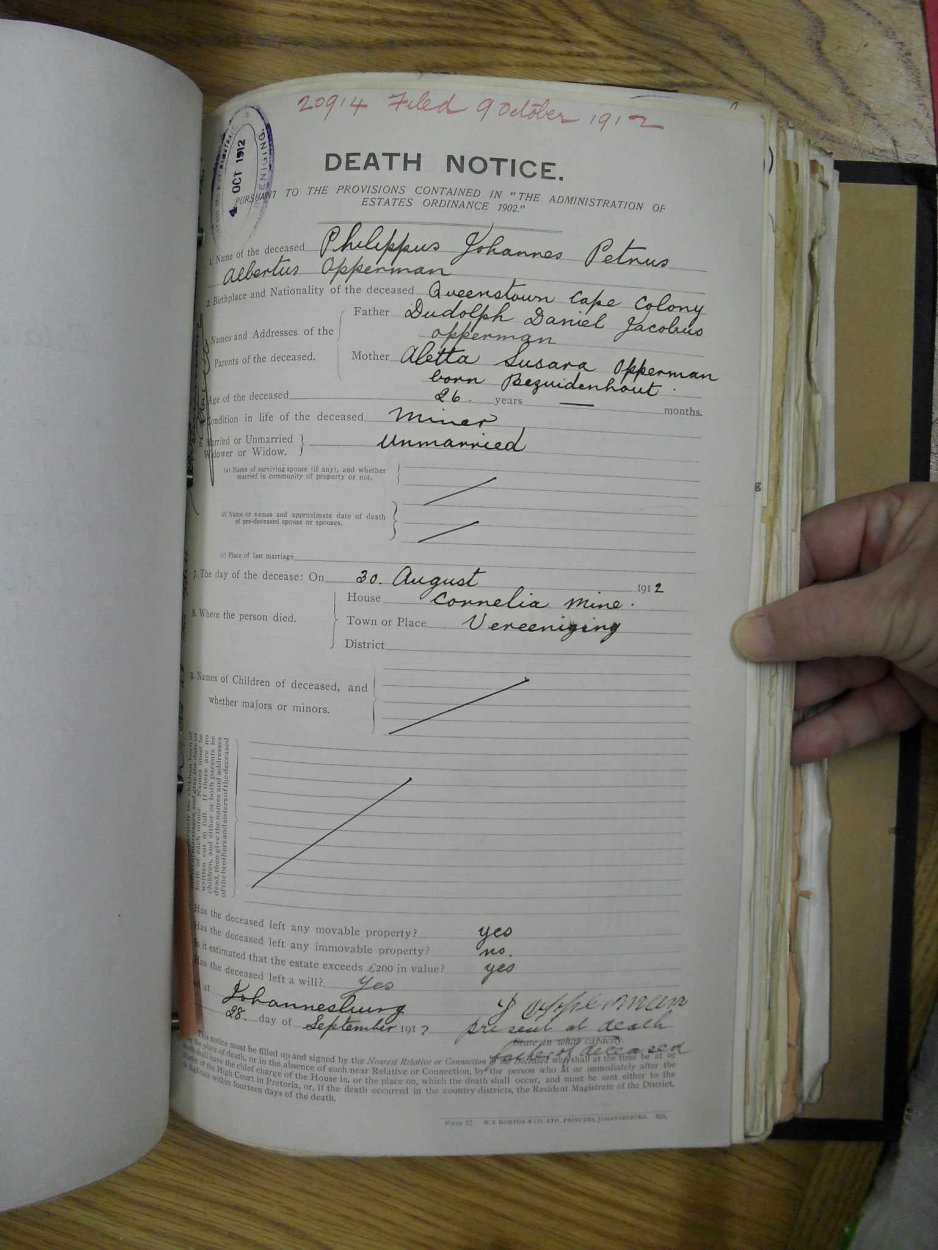 20914 Filed 9 October 1912
4 OCT 1912
DEATH NOTICE.
PURSUANT TO THE PROVISIONS CONTAINED IN "THE ADMINISTRATION OF
ESTATES ORDINANCE 1902."
1. Name of the deceased Philippus Johannes Petrus
Albertus Opperman
2. Birthplace and Nationality of the deceased Queenstown Cape Colony
Names and Addresses of the Parents of the deceased.
Father Dudolph Daniel Jacobus
Opperman
Mother Aletta Susara Opperman
born Bezuidenhout
Age of the deceased 26. years — months.
Condition in life of the deceased Miner
Married or Unmarried Unmarried
Widower or Widow.
(a) Name of surviving spouse (if any), and whether
married in community of property or not.
(b) Name or names and approximate date of death
of pre-deceased spouse or spouses.
(c) Place of last marriage
7. The day of the decease: On 30. August 1912
8. Where the person died.
House Cornelia Mine.
Town or Place Vereeniging
District
9. Names of Children of deceased, and
whether majors or minors.
written out in full. If there are no
children, and either or both parents be
dead, then give the names and addresses
of the brothers and sisters of the deceased
Has the deceased left any movable property? yes
Has the deceased left any immovable property? no.
Is it estimated that the estate exceeds £200 in value? yes
Has the deceased left a will? Yes
at Johannesburg
28. day of September 191
Opperman
present at death
State in what capacity.
father of deceased
This notice must be filled up and signed by the Nearest Relative or Connection of the deceased who shall at the time be at or
the place of death, or in the absence of such near Relative or Connection, by the person who at or immediately after the
death shall have the chief charge of the House in, or the place on, which the death shall occur, and must be sent either to the
Master of the High Court in Pretoria, or, if the death occurred in the country districts, the Resident Magistrate of the District,
in duplicate within fourteen days of the death.
FORM 27. W. E. HORTOR & CO. LTD., PRINTERS, JOHANNESBURG.